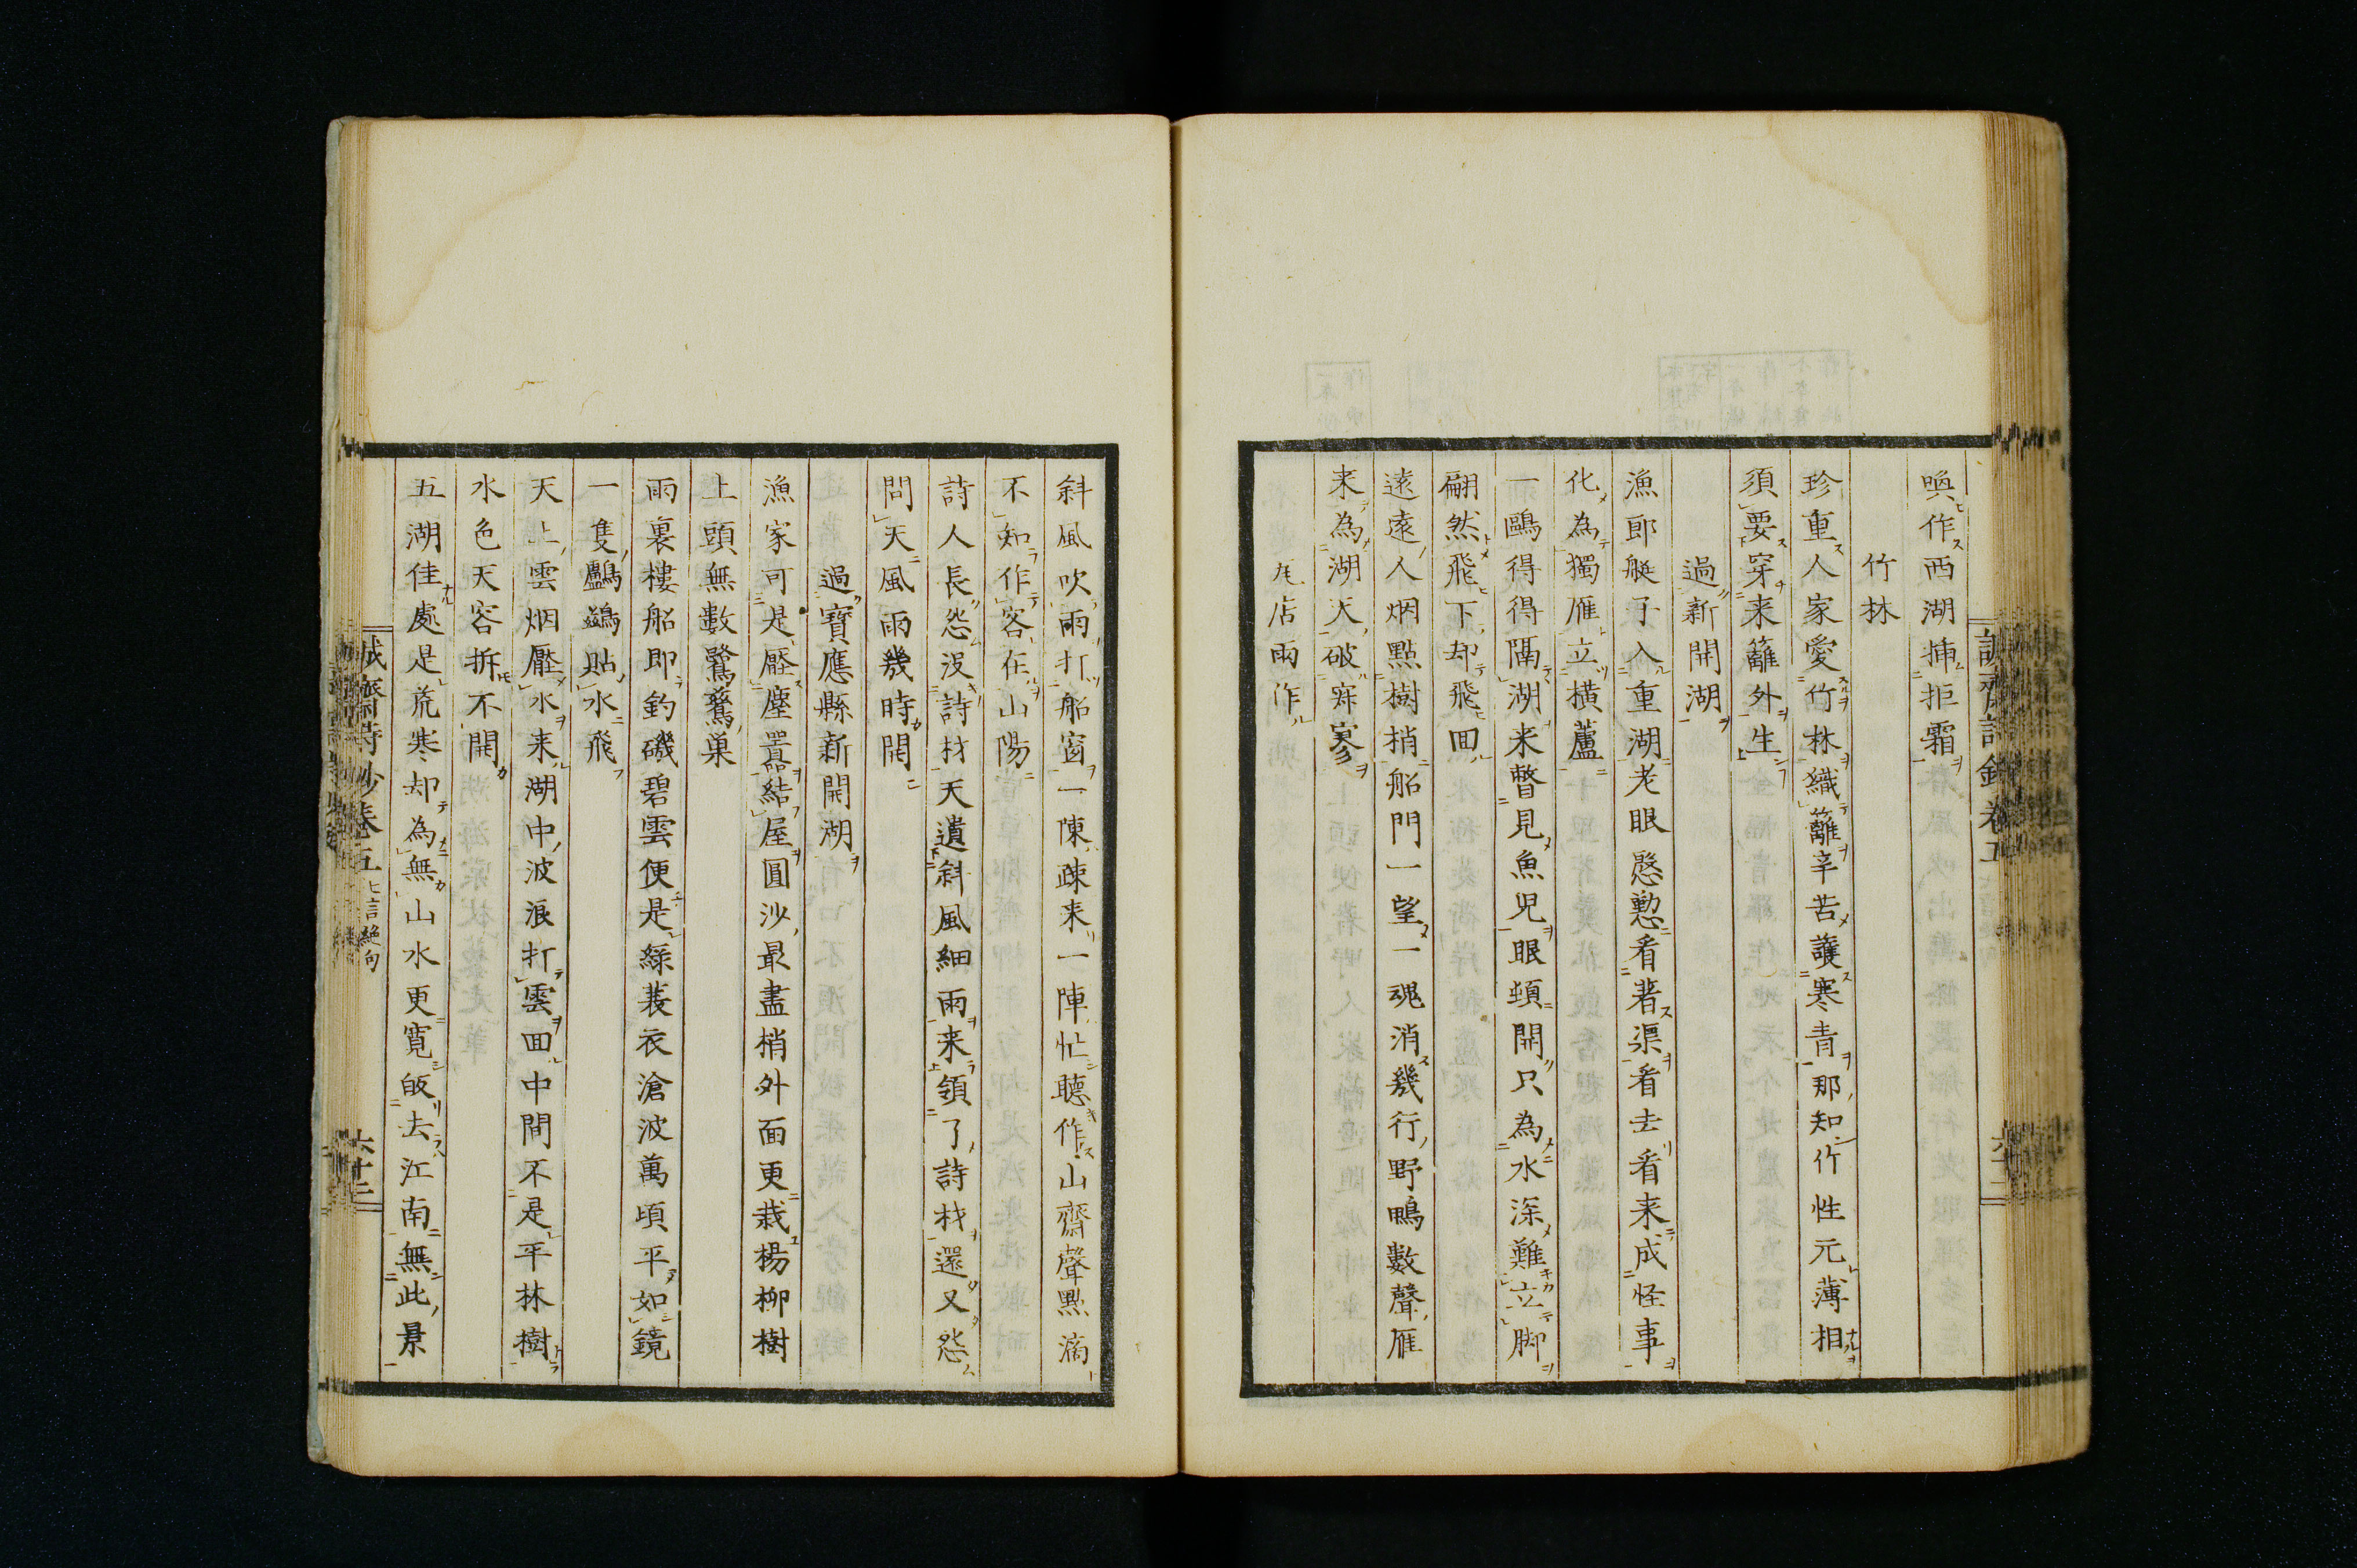 喚作西湖挿拒霜
竹林
珍重人家愛竹林織籬辛苦護寒青那知竹性元薄相
須要穿来籬外生
過新開湖
漁郎艇子入重湖老眼慇懃看著渠看去看来成怪事
化為獨雁立横蘆
一鷗得得隔湖来瞥見魚児眼頓開只為水深難立脚
翩然飛下却飛回
遠遠人烟點樹梢船門一望一魂消幾行野鴨數聲雁
来為湖天破寂寥
店雨作
斜風吹雨打船窗一陳疎来一陣忙聴作山齋聲點滴
不知作客在山陽
詩人長怨沒詩材天遺斜風細雨来領了詩材還又怨
問天風雨幾時開
過寶應縣新開湖
漁家可是厭塵囂結屋圓沙最盡梢外面更栽楊柳樹
上頭無數鷺鷥巢
雨裏樓船即釣磯碧雲便是緑蓑衣滄波萬頃平如鏡
一隻鸕鷀貼水飛
天上雲烟壓水来湖中波浪打雲回中間不是平林樹
水色天容拆不開
五湖佳處是荒寒却為無山水更寛皈去江南無此景
誠齋詩鈔巻五 七言絶句 六十二